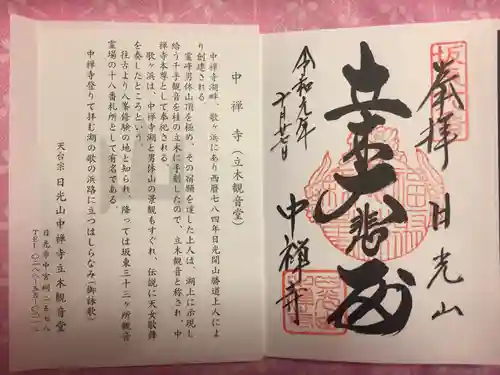 中禅寺(立木観音堂)
中禅寺湖畔、歌ヶ浜にあり西暦七八四年日光開山勝道上人によ
り創建される。
霊峰男体山頂を極め、その宿願を達した上人は、湖上に示現し
給う千手観音を桂の立木に手刻したので、立木観音と称され、中
禅寺本尊として奉祀される。
歌ヶ浜は、中禅寺湖と男体山の景観もすぐれ、伝説に天女歌舞
を奏したところという。
往古より八峯修験の地と知られ、降っては坂東三十三ヶ所観音
霊場の十八番札所として有名である
中禅寺登りて拝む湖の歌の浜路に立つはしらなみ(御詠歌)
天台宗 日光山中禅寺立木観音堂
日光市中宮祠二五七八
奉拝 日光山
立木大悲殿
中禅寺
令和元年
十月廿七日